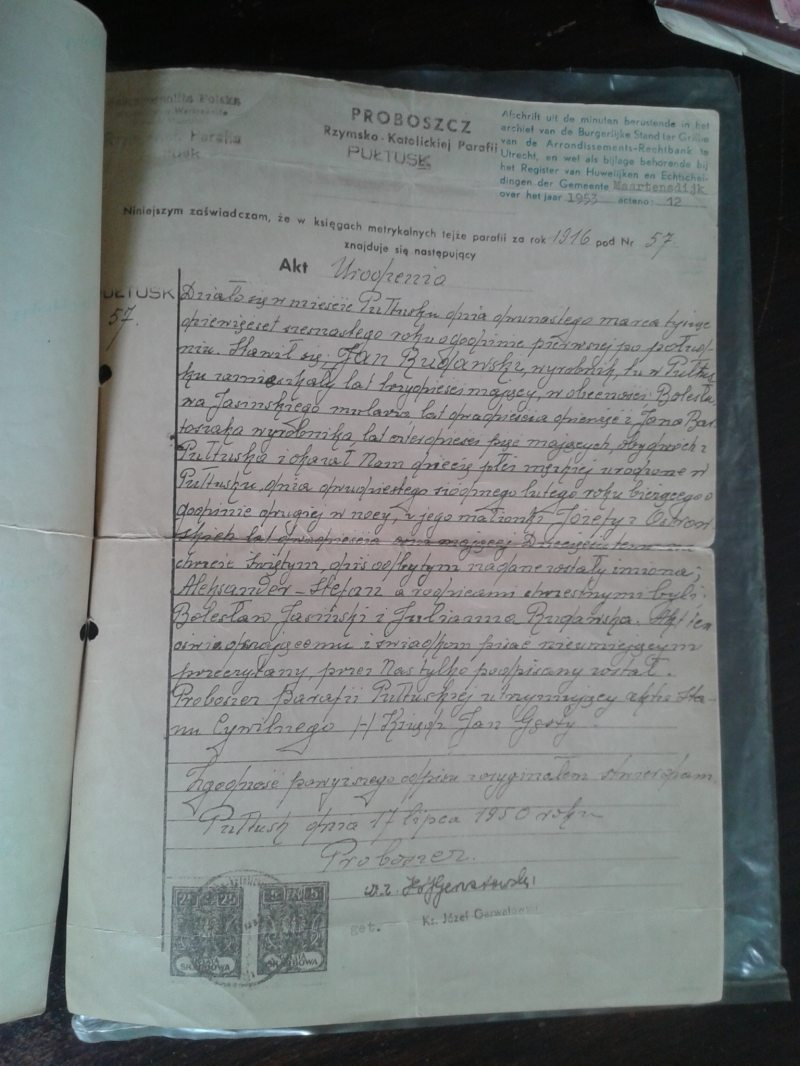 Rzeczpospolita Polska
PROBOSZCZ
Rzymsko-Katolickiej Parafii
PUŁTUSK
Afschrift uit de minuten berustende in het
archief van de Burgerlijke Stand ter Griffie
van de Arrondissements-Rechtbank te
Utrecht, en wel als bijlage behorende bij
het Register van Huwelijken en Echtschei-
dingen der Gemeente Maartensdijk
over het jaar 1953 acteno: 12
Niniejszym zaświadczam, że w księgach metrykalnych tejże parafii za rok 1916 pod Nr 57
znajduje się następujący
Akt Urodzenia
PUŁTUSK
57.
Działo się w mieście Pułtusku dnia dwunastego marca tysiąc
dziewięćset szesnastego roku o godzinie pierwszej po połud-
niu. Stawił się, Jan Rudański, wyrobnik, tu w Pułtus-
ku zamieszkały lat trzydzieści mający, w obecności Bolesła
wa Jasińskiego mularza lat dwadzieścia dziewięć i Jana Bar
tosiaka wyrobnika, lat czterdzieści pięć mających, obydwóch z
Pułtuska i okazał Nam dziecię płci męskiej urodzone w
Pułtusku, dnia dwudziestego siódmego lutego roku bieżącego o
godzinie drugiej w nocy, z jego małżonki Józefy z Ostrow
skich lat dwadzieścia mającej Dziecięciu temu na
chrzcie świętym, dziś odbytym nadane zostały imiona;
Aleksander-Stefan a rodzicami chrzestnymi byli.
Bolesław Jasiński i Julianna Rudańska. Akt ten
oświadczającemu i świadkom pisać nieumiejącym
przeczytany, przez Nas tylko podpisany został.
Proboszcz Parafii Pułtuskiej utrzymujący akta Sta-
nu Cywilnego /-/ Ksiądz Jan Gęsty.
Zgodność powyższego odpisu z oryginałem stwierdzam
Pułtusk dnia 17 lipca 1950 roku
Proboszcz.
get. Ks. Józef
SKARBOWA SKARBOWA